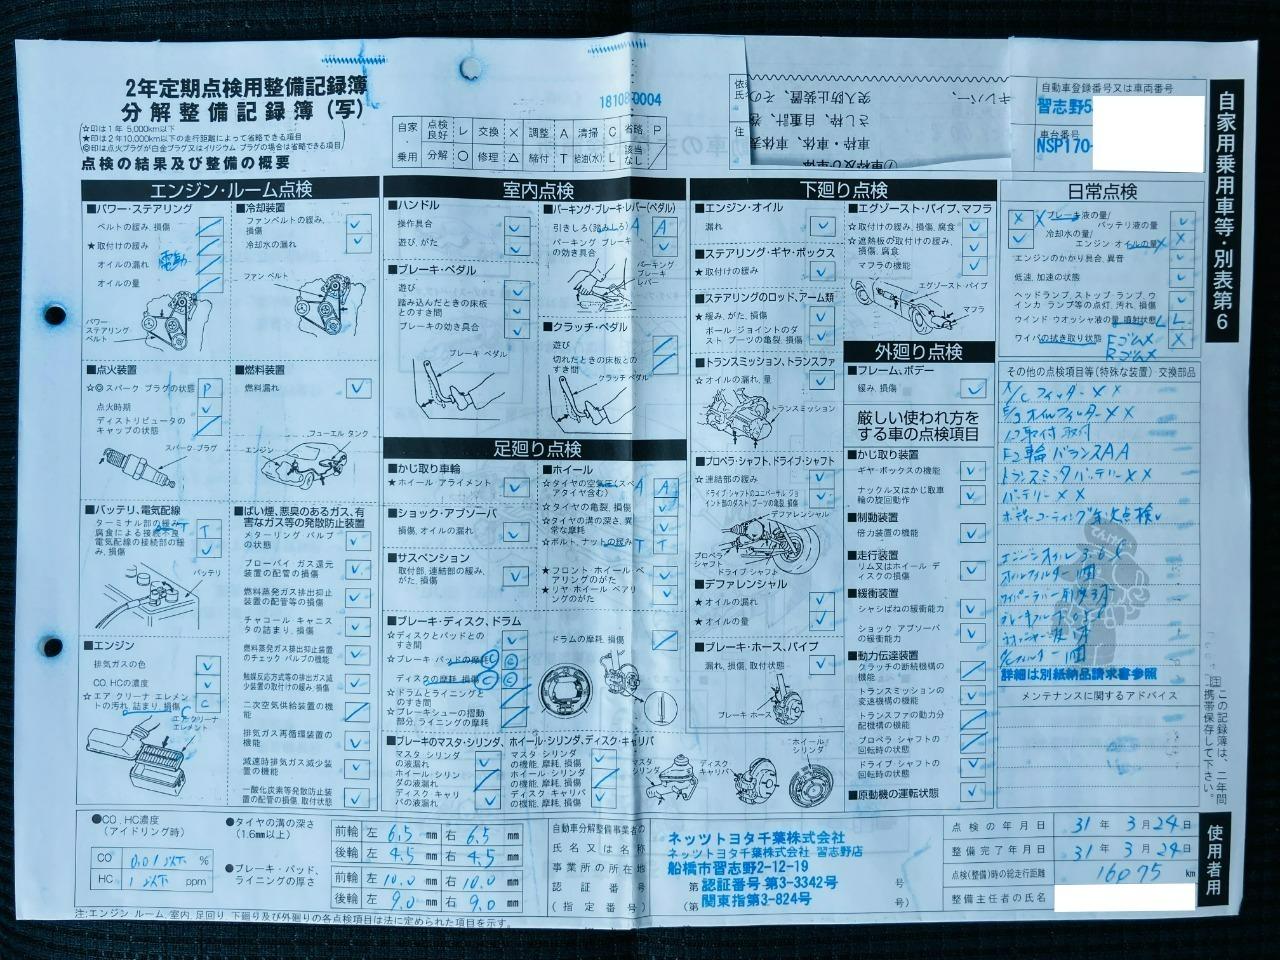 2年定期点検用整備記録簿
分解整備記録簿(写)
☆印は1年 5,000km以下
★印は2年10,000km以下の走行距離によって省略できる項目
◎印は点火プラグが白金プラグ又はイリジウム プラグの場合は省略できる項目
点検の結果及び整備の概要
自家・乗用
点検良好 レ 交換 × 調整 A 清掃 C 省略 P
分解 ○ 修理 △ 締付 T 給油(水) L 該当なし ／
自動車登録番号又は車両番号
習志野5
車台番号
NSP170-
自家用乗用車等・別表第6
エンジン・ルーム点検
■パワー・ステアリング
ベルトの緩み、損傷
★取付けの緩み
オイルの漏れ 電動
オイルの量
パワーステアリングベルト
■冷却装置
ファンベルトの緩み、損傷
冷却水の漏れ
ファン ベルト
■点火装置
☆◎スパーク プラグの状態 P
点火時期
ディストリビュータのキャップの状態
スパーク・プラグ
■燃料装置
燃料漏れ
フューエル タンク
エンジン
■バッテリ、電気配線
ターミナル部の緩み、腐食による接続不良 T
電気配線の接続部の緩み、損傷
バッテリ
■エンジン
排気ガスの色
CO、HCの濃度
☆エア クリーナ エレメントの汚れ、詰まり、損傷 C
エア クリーナ エレメント
■ばい煙、悪臭のあるガス、有害なガス等の発散防止装置
メターリング バルブの状態
ブローバイ ガス還元装置の配管の損傷
燃料蒸発ガス排出抑止装置の配管等の損傷
チャコール キャニスタの詰まり、損傷
燃料蒸発ガス排出抑止装置のチェック バルブの機能
触媒反応方式等の排出ガス減少装置の取付けの緩み、損傷
二次空気供給装置の機能
排気ガス再循環装置の機能
減速時排気ガス減少装置の機能
一酸化炭素等発散防止装置の配管の損傷、取付状態
室内点検
■ハンドル
操作具合
遊び、がた
■ブレーキ・ペダル
遊び
踏み込んだときの床板とのすき間
ブレーキの効き具合
ブレーキ ペダル
■パーキング・ブレーキ・レバー(ペダル)
引きしろ(踏みしろ) A A
パーキング ブレーキの効き具合
パーキング ブレーキ レバー
■クラッチ・ペダル
遊び
切れたときの床板とのすき間
クラッチ ペダル
足廻り点検
■かじ取り車輪
★ホイール アライメント
■ショック・アブソーバ
損傷、オイルの漏れ
■サスペンション
取付部、連結部の緩み、がた、損傷
■ホイール
☆タイヤの空気圧(スペアタイヤ含む) A
☆タイヤの亀裂、損傷
☆タイヤの溝の深さ、異常な摩耗
☆ボルト、ナットの緩み T T
★フロント ホイール ベアリングのがた
★リヤ ホイール ベアリングのがた
■ブレーキ・ディスク、ドラム
☆ディスクとパッドとのすき間
☆ブレーキ・パッドの摩耗 C C
ディスクの摩耗、損傷 C C
☆ドラムとライニングとのすき間
☆ブレーキシューの摺動部分、ライニングの摩耗
ドラムの摩耗、損傷
■ブレーキのマスタ・シリンダ、ホイール・シリンダ、ディスク・キャリパ
マスタ・シリンダの液漏れ
ホイール・シリンダの液漏れ
ディスク キャリパの液漏れ
マスタ シリンダの機能、摩耗、損傷
ホイール・シリンダの機能、摩耗、損傷
ディスク キャリパの機能、摩耗、損傷
マスタ シリンダ
ディスク キャリパ
ホイール シリンダ
下廻り点検
■エンジン・オイル
漏れ
■ステアリング・ギヤ・ボックス
★取付けの緩み
■ステアリングのロッド、アーム類
★緩み、がた、損傷
ボール・ジョイントのダスト ブーツの亀裂、損傷
■トランスミッション、トランスファ
☆オイルの漏れ、量
トランスミッション
■プロペラ・シャフト、ドライブ・シャフト
☆連結部の緩み
ドライブ・シャフトのユニバーサル ジョイント部のダスト ブーツの亀裂、損傷
デファレンシャル
プロペラ シャフト
ドライブ シャフト
■デファレンシャル
★オイルの漏れ
★オイルの量
■ブレーキ・ホース、パイプ
漏れ、損傷、取付状態
ブレーキ ホース
■エグゾースト・パイプ、マフラ
☆取付けの緩み、損傷、腐食
☆遮熱板の取付けの緩み、損傷、腐食
マフラの機能
エグゾースト パイプ
マフラ
外廻り点検
■フレーム、ボデー
緩み、損傷
厳しい使われ方をする車の点検項目
■かじ取り装置
ギヤ・ボックスの機能
ナックル又はかじ取車輪の旋回動作
■制動装置
倍力装置の機能
■走行装置
リム又はホイール ディスクの損傷
■緩衝装置
シャシばねの緩衝能力
ショック アブソーバの緩衝能力
■動力伝達装置
クラッチの断続機構の機能
トランスミッションの変速機構の機能
トランスファの動力分配機構の機能
プロペラ シャフトの回転時の状態
ドライブ・シャフトの回転時の状態
■原動機の運転状態
日常点検
ブレーキ液の量/バッテリ液の量
冷却水の量/エンジン オイルの量
エンジンのかかり具合、異音
低速、加速の状態
ヘッドランプ、ストップ ランプ、ウインカ ランプ等の点灯、汚れ、損傷
ウインド ウオッシャ液の量、噴射状態 L L
ワイパの拭き取り状態 Fゴム× Rゴム×
その他の点検項目等(特殊な装置)・交換部品
A/Cフィルター××
E/gオイルフィルター××
バッテリー××
ボディーコーティング年次点検
エンジンオイル 3.6
オイルフィルター 1個
詳細は別紙納品請求書参照
メンテナンスに関するアドバイス
注 この記録簿は、二年間携帯保存して下さい。
使用者用
●CO、HC濃度
(アイドリング時)
CO 0.01以下 %
HC 1以下 ppm
●タイヤの溝の深さ
(1.6mm以上)
前輪 左 6.5 mm 右 6.5 mm
後輪 左 4.5 mm 右 4.5 mm
●ブレーキ・パッド、ライニングの厚さ
前輪 左 10.0 mm 右 10.0 mm
後輪 左 9.0 mm 右 9.0 mm
自動車分解整備事業者の
氏名又は名称
事業所の所在地
認証番号
(指定番号)
ネッツトヨタ千葉株式会社
ネッツトヨタ千葉株式会社 習志野店
船橋市習志野2-12-19
第 認証番号 第3-3342号 号
(第 関東指第3-824号 号)
点検の年月日 31年 3月 24日
整備完了年月日 31年 3月 24日
点検(整備)時の総走行距離 16075 km
整備主任者の氏名
注:エンジン ルーム、室内、足回り、下廻り及び外廻りの各点検項目は法に定められた項目を示す。